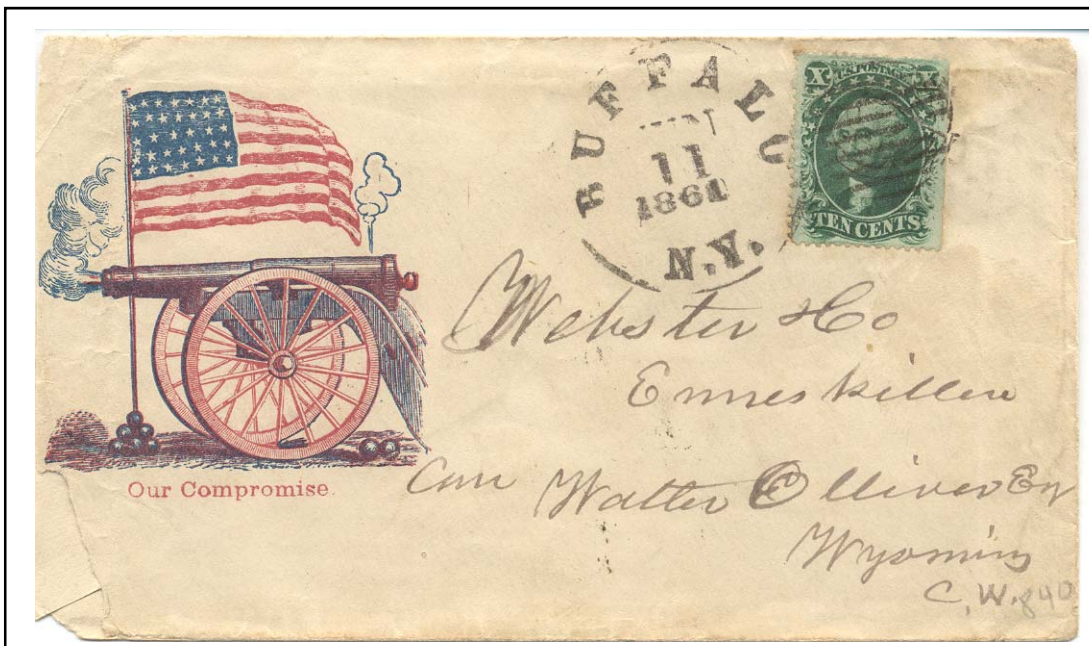 BUFFALO
JUN
11
1861
N.Y.
X U.S. POSTAGE X
TEN CENTS
Our Compromise.
Webster & Co
Enneskillen
Care Walter Olliver Esq
Wyoming
C.W.
840